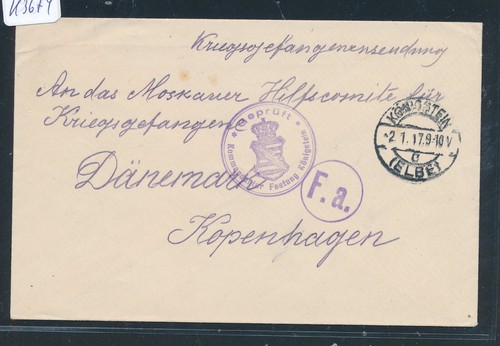 K36F4
Kriegsgefangenensendung
An das Moskauer Hilfscomite für
Kriegsgefangen
Dänemark
Kopenhagen
Geprüft
Festung Königstein
F. a.
KÖNIGSTEIN
-2.1.17.9-10V
c
(ELBE)